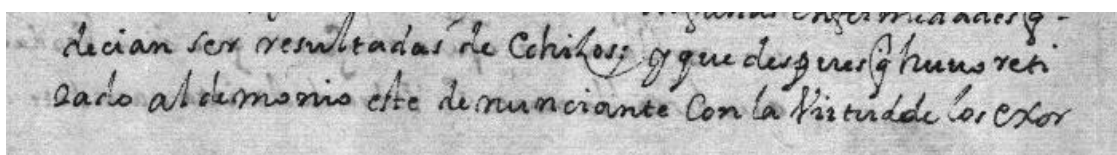 enfermedades q̃
decian ser resultadas de Echizos; y que despues q̃ huuo reti
rado al demonio este denunciante Con la Virtud de los exor